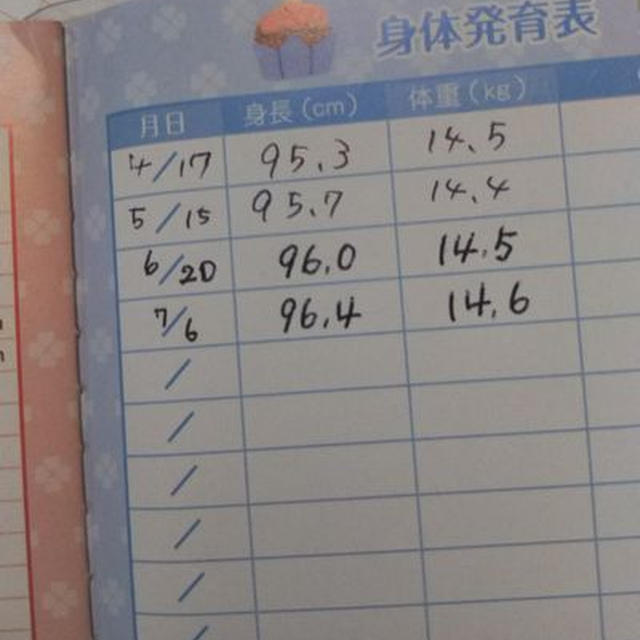 身体発育表
月日 身長(cm) 体重(kg)
4/17 95.3 14.5
5/15 95.7 14.4
6/20 96.0 14.5
7/6 96.4 14.6
/
/
/
/
/
/